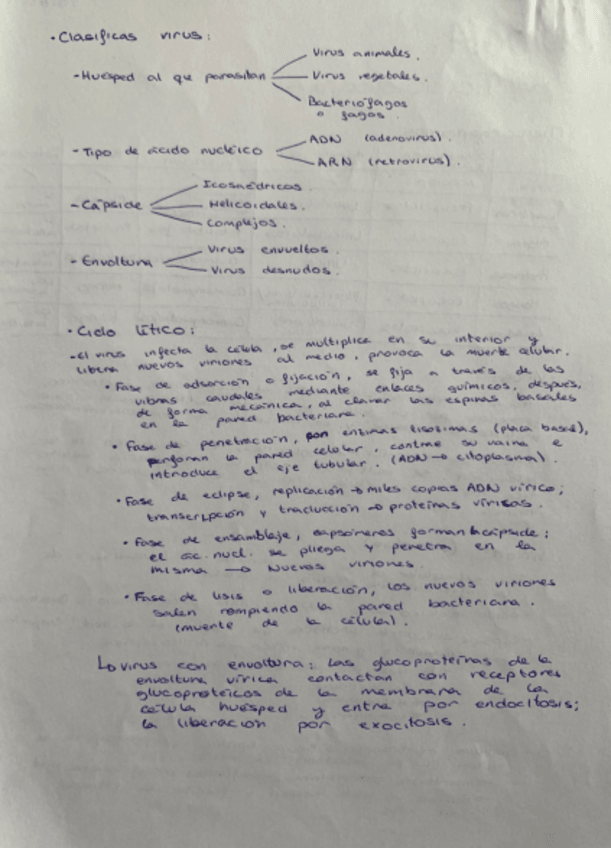 · Clasificas virus:
- Huésped al que parasitan
Virus animales.
Virus vegetales.
Bacteriófagos
o fagos.
- Tipo de ácido nucléico
ADN (adenovirus).
ARN (retrovirus).
- Cápside
Icosaédricas.
Helicoidales.
Complejos.
- Envoltura
Virus envueltos.
Virus desnudos.
· Ciclo lítico:
- el virus infecta la célula, se multiplica en su interior y
libera nuevos viriones al medio, provoca la muerte celular.
· Fase de adsorción o fijación, se fija a través de las
vibras caudales mediante enlaces químicos, después,
de forma mecánica, al clavar las espinas basales
en la pared bacteriana.
· Fase de penetración, con enzimas lisosimas (placa basal),
perforan la pared celular, contrae su vaina e
introduce el eje tubular. (ADN → citoplasma).
· Fase de eclipse, replicación → miles copias ADN vírico;
transcripción y traducción → proteínas víricas.
· Fase de ensamblaje, capsómeros forman la cápside;
el ác. nucl. se pliega y penetra en la
misma → Nuevos viriones.
· Fase de lisis o liberación, los nuevos viriones
salen rompiendo la pared bacteriana.
(muerte de la célula).
↳ virus con envoltura: las glucoproteínas de la
envoltura vírica contactan con receptores
glucoproteicos de la membrana de la
célula huésped y entra por endocitosis;
la liberación por exocitosis.